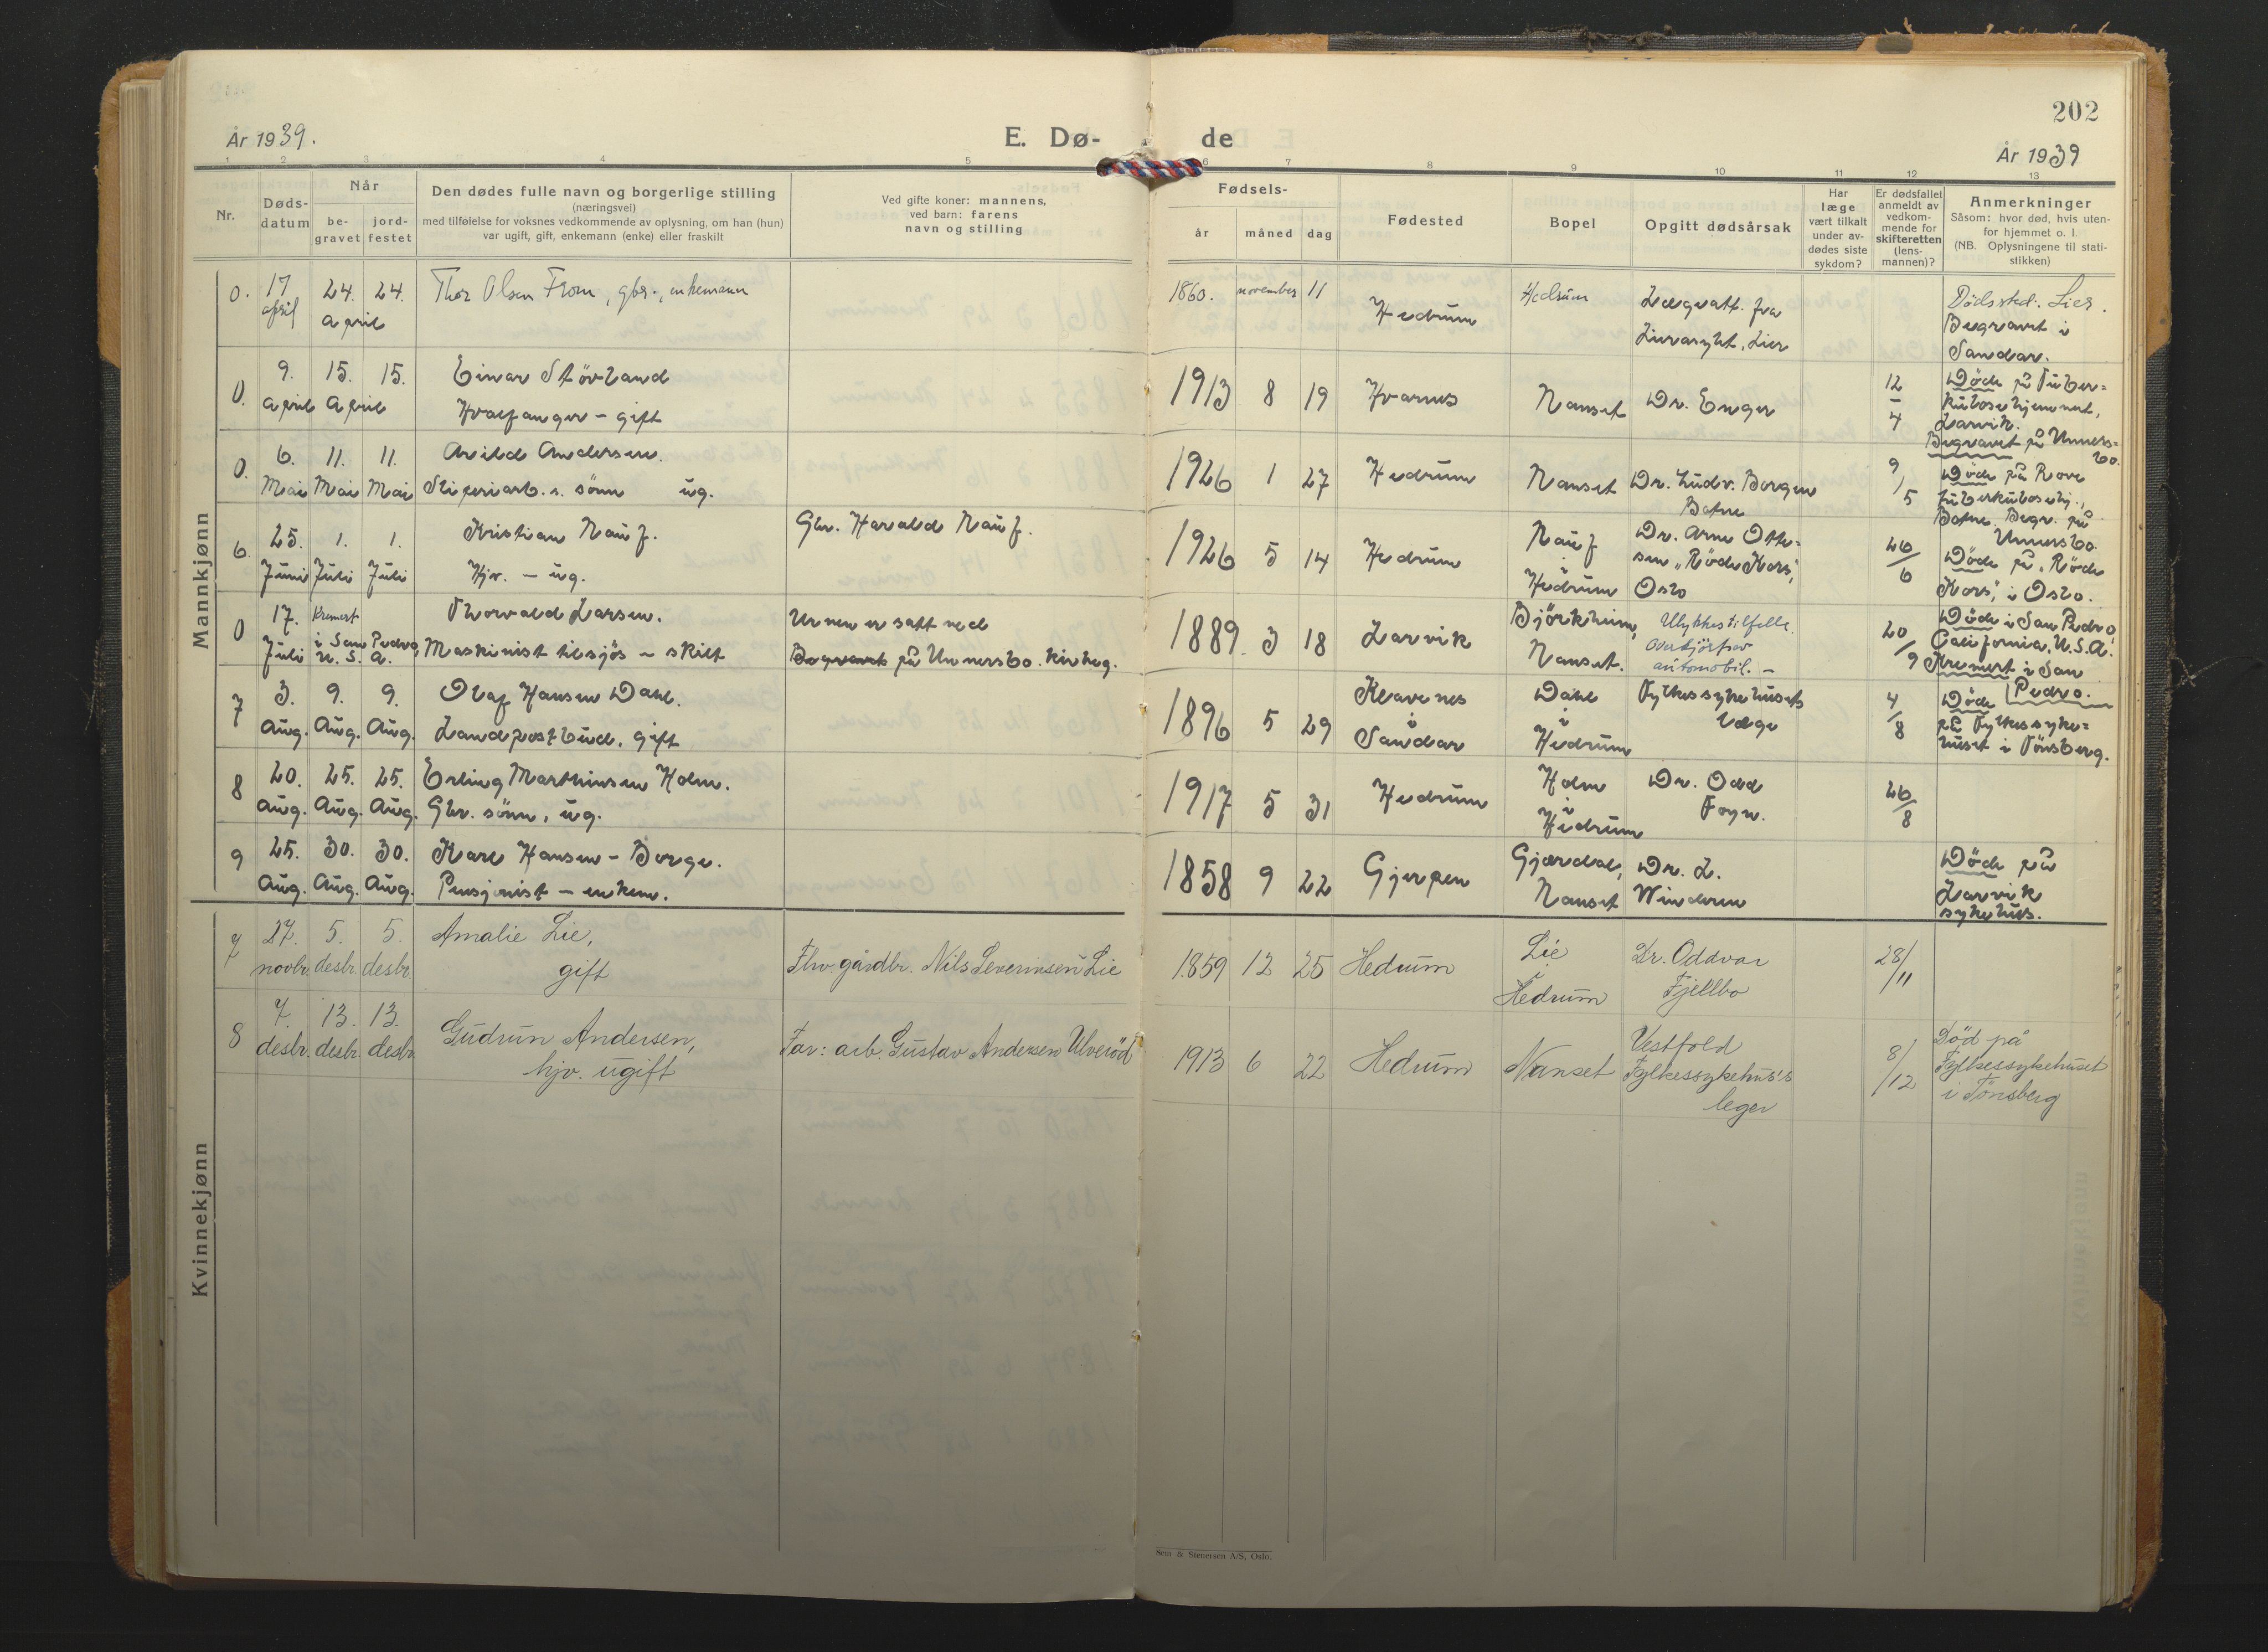 202
År 1939.
E. Dø-
de
År 1939
1 2 3 4 5 6 7 8 9 10 11 12 13
Nr.
Døds-
datum
Når
be-
gravet
jord-
festet
Den dødes fulle navn og borgerlige stilling
(næringsvei)
med tilføielse for voksnes vedkommende av oplysning, om han (hun)
var ugift, gift, enkemann (enke) eller fraskilt
Ved gifte koner: mannens,
ved barn: farens
navn og stilling
Fødsels-
år måned dag
Fødested
Bopel
Opgitt dødsårsak
Har
læge
vært tilkalt
under av-
dødes siste
sykdom?
Er dødsfallet
anmeldt av
vedkom-
mende for
skifteretten
(lens-
mannen)?
Anmerkninger
Såsom: hvor død, hvis uten-
for hjemmet o. l.
(NB. Oplysningene til stati-
stikken)
Mannkjønn
0. 17 24. 24. Thor Olsen From, gbr., enkemann 1860. november 11 Hedrum Hedrum Lægeatt. fra Dødssted: Lier.
april april Liersykh., Lier Begravet i
Sandar.
0. 9. 15. 15. Einar Støvland 1913 8 19 Hvarnes Nanset Dr. Enger 12 Døde på Tuber=
april april Hvalfanger – gift – kulosehjemmet,
4 Larvik.
Begravet på Unners=
bo.
0. 6. 11. 11. Arild Andersen. 1926 1 27 Hedrum Nanset Dr. Ludv. Borgen 9/5 Døde på Rove
Mai Mai Mai Sliperiarb. s. sønn ug. Botne tuberkulosehj.,
Botne. Begr. på
Unnersbo.
6. 25. 1. 1. Kristian Nauf. Gbr. Harald Nauf. 1926 5 14 Hedrum Nauf Dr. Arne Otte= 26/6 Døde på "Røde
Juni Juli Juli Hjv. – ug. i sen "Røde Kors", Kors", i Oslo.
Hedrum Oslo
0 17. Kremert Thorvald Larsen. Urnen er satt ned 1889. 3 18 Larvik Bjørkheim, Ulykkestilfelle. 20/9 Døde i San Pedro,
Juli i San Pedro, Maskinist tilsjøs – skilt Begravet på Unnersbo. kirkeg. Nanset. Overkjørt av California, U.S.A.
U. S. A. automobil. – Kremert i San
Pedro.
7 3. 9. 9. Olaf Hansen Dahl. 1896 5 29 Klavenes Dahl Fylkessykehusets 4/8 Døde
Aug. Aug. Aug. Landpostbud, gift i i læge på Fylkessyke=
Sandar Hedrum huset i Tønsberg.
8 20. 25. 25. Erling Marthinsen Holm. 1917 5 31 Hedrum Holm Dr. Odd 26/8
Aug. Aug. Aug. Gbr. sønn, ug. i Fogn.
Hedrum
9 25. 30. 30. Karl Hansen – Borge. 1858 9 22 Gjerpen Gjærdal, Dr. L. Døde på
Aug. Aug. Aug. Pensjonist – enkem. Nanset Winderen Larvik
sykehus.
Kvinnekjønn
7 27. 5. 5. Amalie Lie, Fhv. gårdbr. Nils Severinsen Lie 1859 12 25 Hedrum Lie Dr. Oddvar 28/11
novbr. desbr. desbr. gift i Fjellbo
Hedrum
8 7. 13. 13. Gudrun Andersen, Far: arb. Gustav Andersen Ulverød 1913 6 22 Hedrum Nanset Vestfold 8/12 Død på
desbr. desbr. desbr. hjv. ugift Fylkessykehus's Fylkessykehuset
leger i Tønsberg
Sem & Stenersen A/S, Oslo.